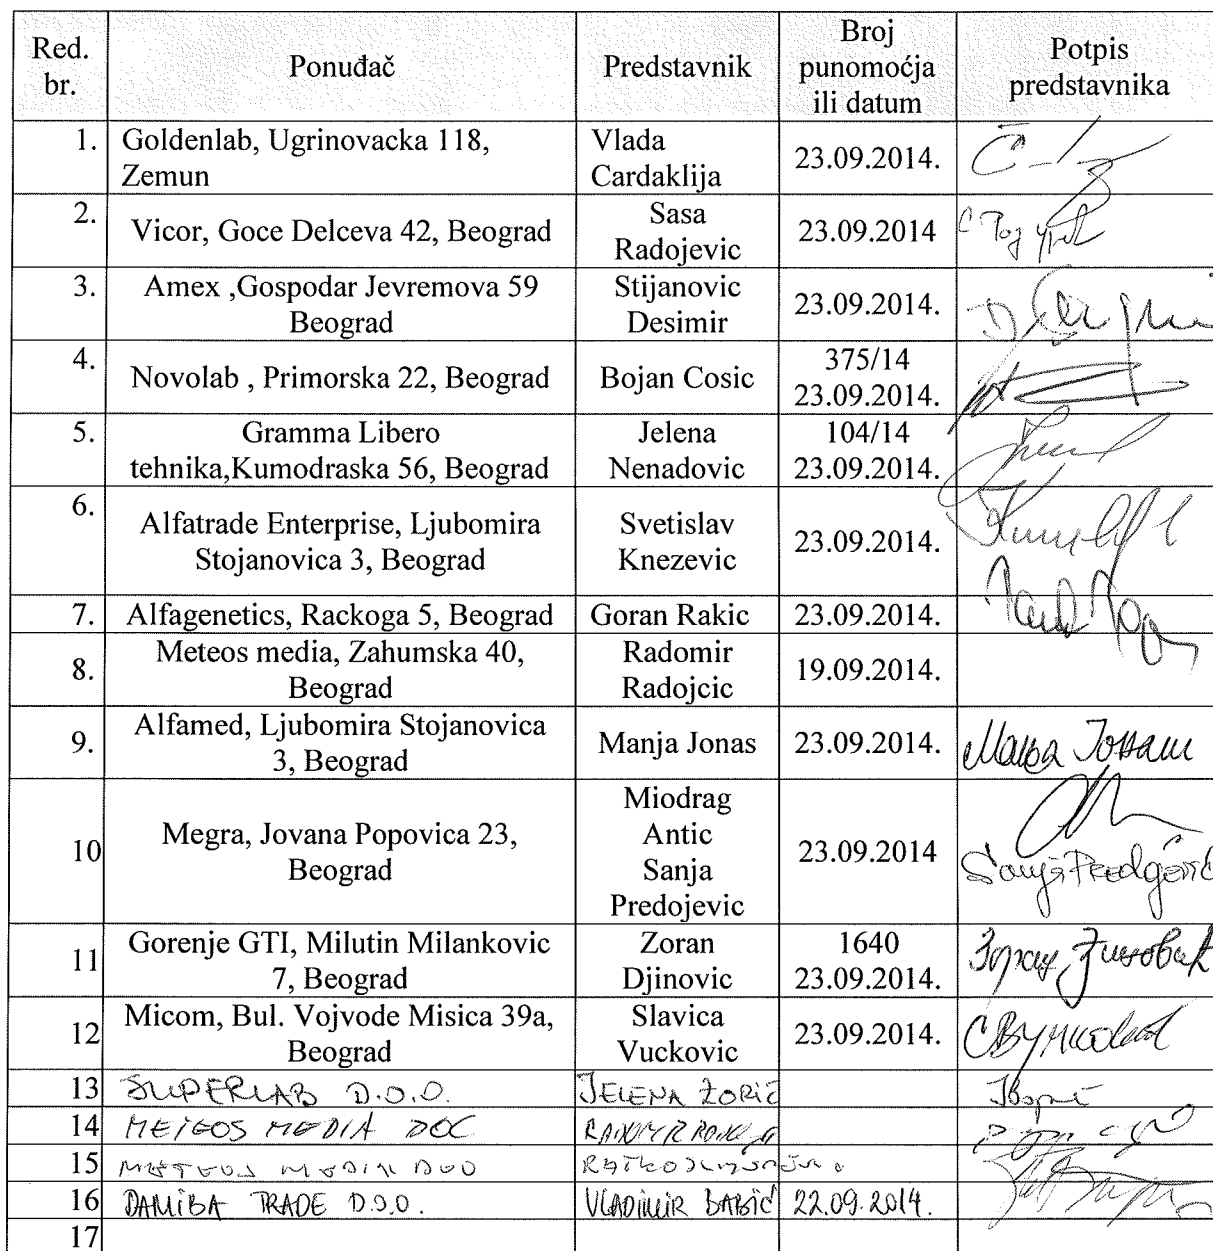 Red. br. Ponuđač Predstavnik Broj punomoćja ili datum Potpis predstavnika
1. Goldenlab, Ugrinovacka 118, Zemun Vlada Cardaklija 23.09.2014.
2. Vicor, Goce Delceva 42, Beograd Sasa Radojevic 23.09.2014
3. Amex ,Gospodar Jevremova 59 Beograd Stijanovic Desimir 23.09.2014.
4. Novolab , Primorska 22, Beograd Bojan Cosic 375/14 23.09.2014.
5. Gramma Libero tehnika,Kumodraska 56, Beograd Jelena Nenadovic 104/14 23.09.2014.
6. Alfatrade Enterprise, Ljubomira Stojanovica 3, Beograd Svetislav Knezevic 23.09.2014.
7. Alfagenetics, Rackoga 5, Beograd Goran Rakic 23.09.2014.
8. Meteos media, Zahumska 40, Beograd Radomir Radojcic 19.09.2014.
9. Alfamed, Ljubomira Stojanovica 3, Beograd Manja Jonas 23.09.2014.
10 Megra, Jovana Popovica 23, Beograd Miodrag Antic Sanja Predojevic 23.09.2014
11 Gorenje GTI, Milutin Milankovic 7, Beograd Zoran Djinovic 1640 23.09.2014.
12 Micom, Bul. Vojvode Misica 39a, Beograd Slavica Vuckovic 23.09.2014.
13 SUPERLAB D.O.O. JELENA ZORIĆ
14 METEOS MEDIA DOO
15 METEOS MEDIA DOO
16 DAMIBA TRADE D.O.O. VLADIMIR BABIĆ 22.09.2014.
17